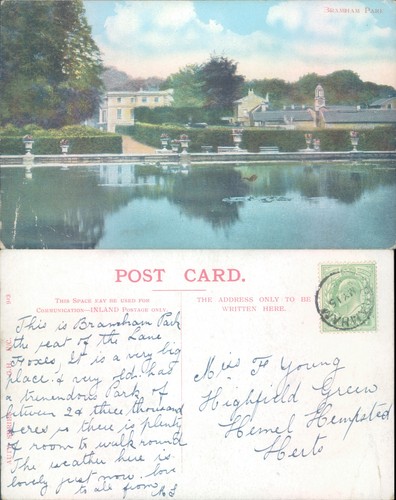 BRAMHAM PARK
POST CARD.
THIS SPACE MAY BE USED FOR
COMMUNICATION—INLAND POSTAGE ONLY.
THE ADDRESS ONLY TO BE
WRITTEN HERE.
This is Bramham Park
the seat of the Lane
Foxes, It is a very big
place & very old. has
a tremendous Park of
between 2 & three thousand
acres so there is plenty
of room to walk round
The weather here is
lovely just now. love
to all from
Miss F Young
Highfield Green
Hemel Hempsted
Herts